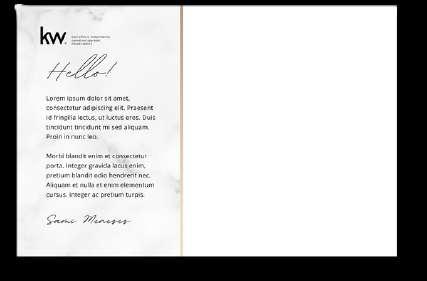 kw
Hello!
Lorem ipsum dolor sit amet,
consectetur adipiscing elit. Praesent
id fringilla lectus, ut luctus eros. Duis
tincidunt tincidunt mi sed aliquam.
Proin in nunc leo.
Morbi blandit enim et consectetur
porta. Integer gravida lacus enim,
pretium blandit odio hendrerit nec.
Aliquam et nulla et enim elementum
cursus. Integer ac pretium turpis.
Sami